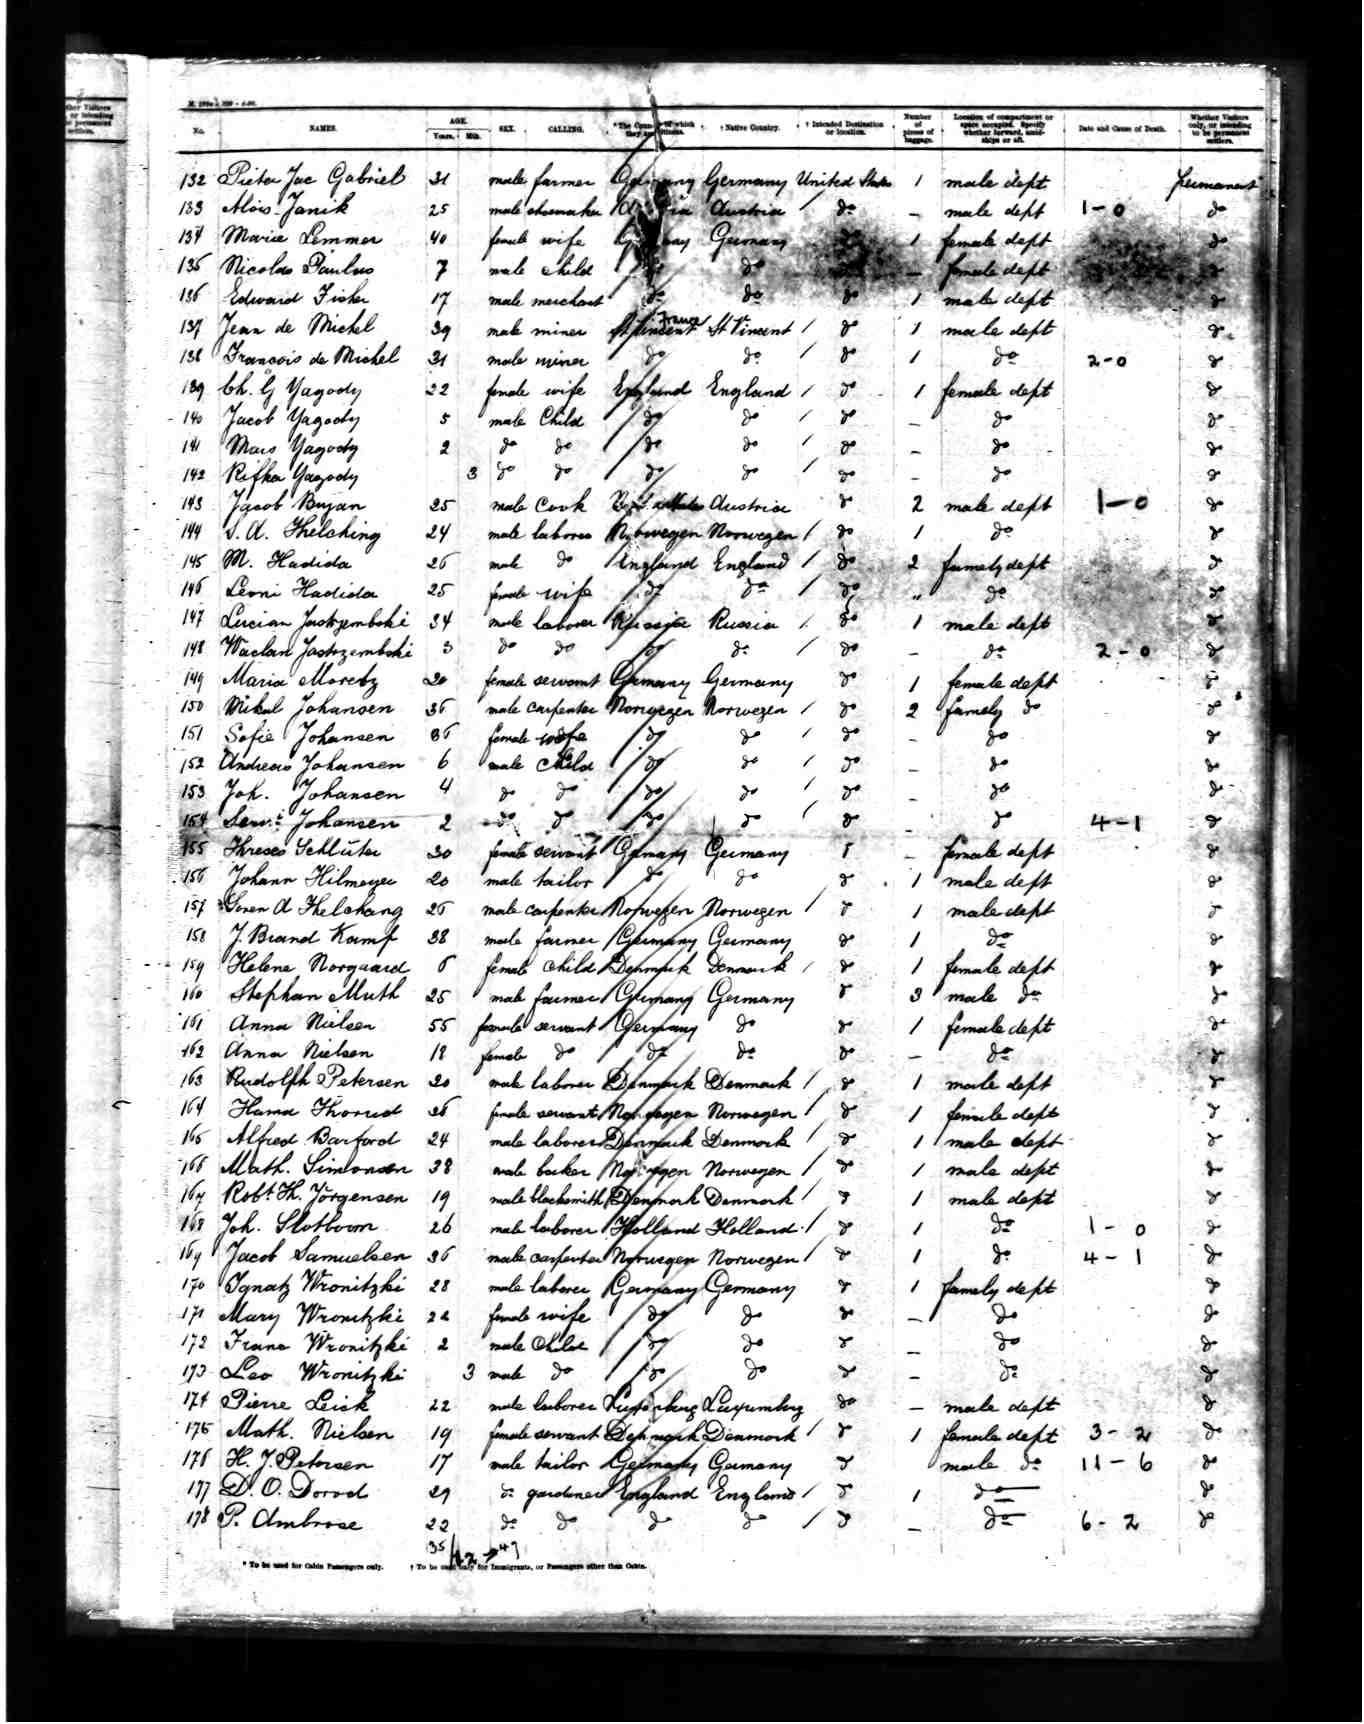 ther Visitors
or intending
permanent
settlers.
No. NAMES. AGE. Years. Mth. SEX. CALLING. *The Coun- of which citizens. † Native Country. † Intended Destination or location. Number of pieces of baggage. Location of compartment or space occupied. Specify whether forward, amidships or aft. Date and Cause of Death. Whether Visitors only, or intending to be permanent settlers.
132 Pieter Jac Gabriel 31 male farmer Germany Germany United States 1 male dept permanent
133 Alois Janik 25 male shoemaker Austria do – male dept 1-0 do
134 Maria Lemmer 40 female wife Germany Germany 1 female dept do
135 Nicolas Paulus 7 male child do do – female dept do
136 Edward Fisher 17 male merchant do do do 1 male dept do
137 Jean de Michel 39 male miner St Vincent France St Vincent / do 1 male dept do
138 Francois de Michel 31 male miner do do / do 1 do 2-0 do
139 Ch. G Yagody 22 female wife England England / do 1 female dept do
140 Jacob Yagody 5 male Child do do / do – do do
141 Mars Yagody 2 do do do do / do – do do
142 Rifka Yagody 3 do do do do / do – do do
143 Jacob Bujan 25 male Cook Austria do 2 male dept 1-0 do
144 S. A. Thelching 24 male laborer Norwegen Norwegen / do 1 do do
145 M. Hadida 26 male do England England / do 2 famely dept do
146 Leoni Hadida 25 female wife do do / do " do do
147 Lucian Jastrzembski 34 male laborer Russia Russia / do 1 male dept do
148 Waclan Jastrzembski 3 do do do do / do – do 2-0 do
149 Maria Moretz 20 female servant Germany Germany do 1 female dept do
150 Mikal Johansen 36 male carpenter Norwegen Norwegen / do 2 famely do do
151 Sofie Johansen 36 female wife do do / do – do do
152 Andreas Johansen 6 male child do do / do – do do
153 Joh. Johansen 4 do do do do / do – do do
154 Johansen 2 do do do do / do – do 4-1 do
155 Threses Schlüter 30 female servant Germany Germany – female dept do
156 Johann Hilmeyer 20 male tailor do do do 1 male dept do
157 Soren A Thelching 26 male carpenter Norwegen Norwegen / do 1 male dept do
158 J. Brand Kamp 38 male farmer Germany Germany do 1 do do
159 Helene Norgaard 6 female child Denmark Denmark / do 1 female dept do
160 Stephan Muth 25 male farmer Germany Germany do 3 male do do
161 Anna Nielsen 55 female servant Germany do do 1 female dept do
162 Anna Nielsen 18 female do do do do – do do
163 Rudolph Petersen 20 male laborer Denmark Denmark / do 1 male dept do
164 Hanna Thorud 26 female servant Norwegen Norwegen / do 1 female dept do
165 Alfred Barford 24 male laborer Denmark Denmark / do 1 male dept do
166 Math. Simonsen 38 male baker Norwegen Norwegen / do 1 male dept do
167 Robt. Th. Jörgensen 19 male blacksmith Denmark Denmark / do 1 male dept do
168 Joh. Slotboom 26 male laborer Holland Holland / do 1 do 1-0 do
169 Jacob Samuelsen 36 male carpenter Norwegen Norwegen / do 1 do 4-1 do
170 Ignatz Wronitzki 28 male laborer Germany Germany do 1 famely dept do
171 Mary Wronitzki 22 female wife do do do – do do
172 Franz Wronitzki 2 male Child do do do – do do
173 Leo Wronitzki 3 male do do do do – do do
174 Pierre Leick 22 male laborer Luxemburg Luxumburg do – male dept do
175 Math. Nielsen 19 female servant Denmark Denmark / do 1 female dept 3-2 do
176 H. J. Petersen 17 male tailor Germany Germany do male do 11-6 do
177 D. O. Dorod 29 do gardener England England / do 1 do do
178 P. Ambrose 22 do do do do / do – do 6-2 do
35 / 12 → 47
* To be used for Cabin Passengers only. † To be used only for Immigrants, or Passengers other than Cabin.